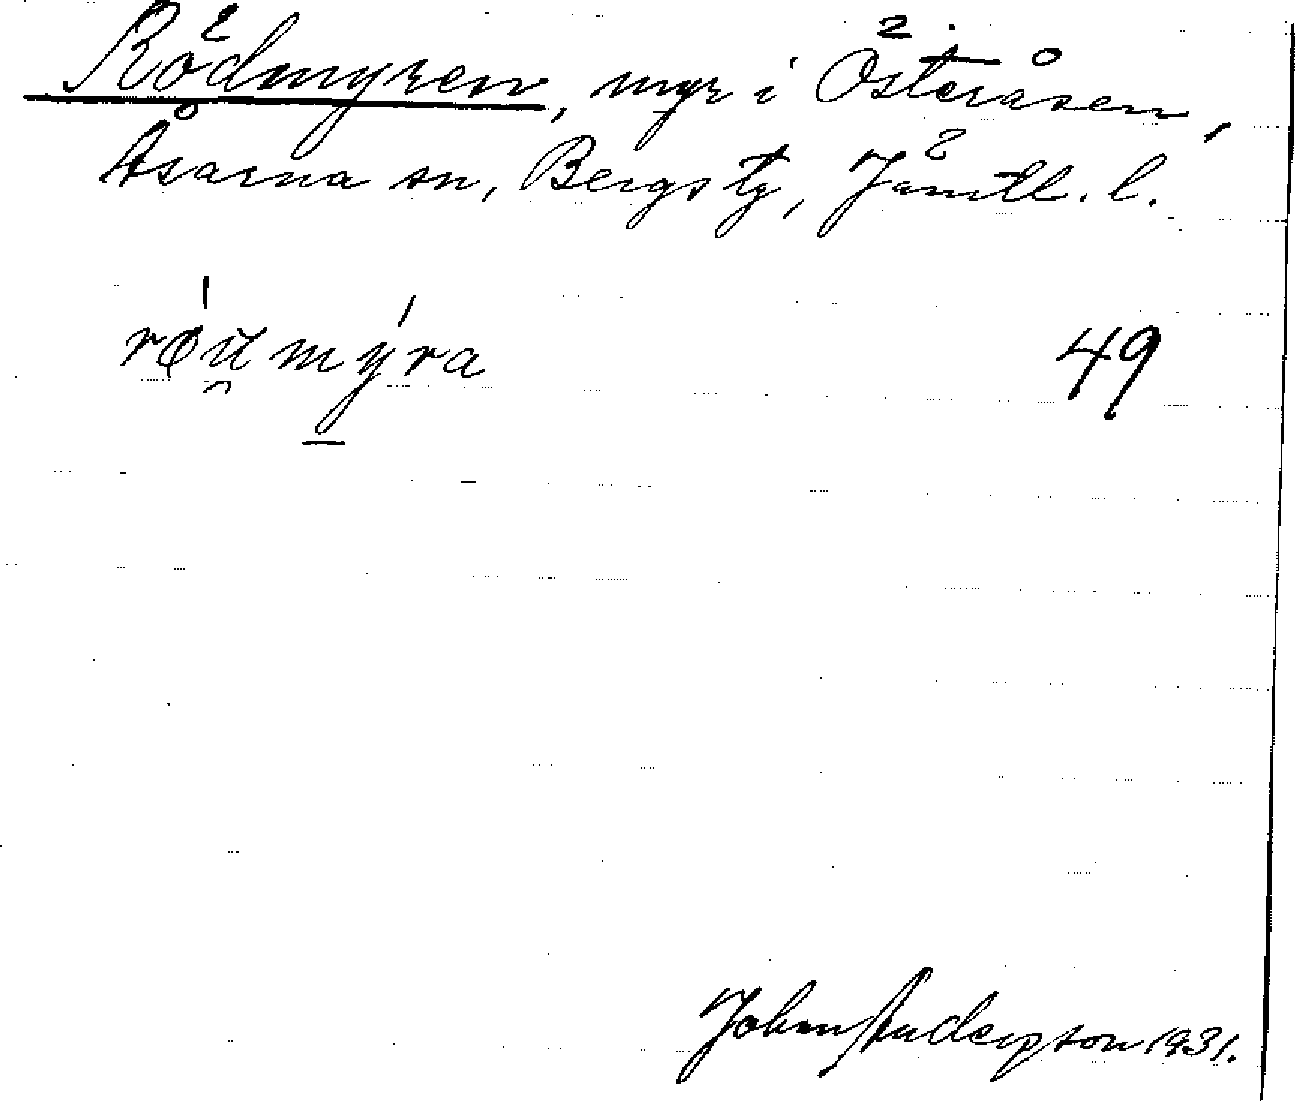 Rödmyren, myr i Österåsen,
Åsarna sn, Bergs tg, Jämtl. l.
røu̯mýra
49
John Andersson 1931.